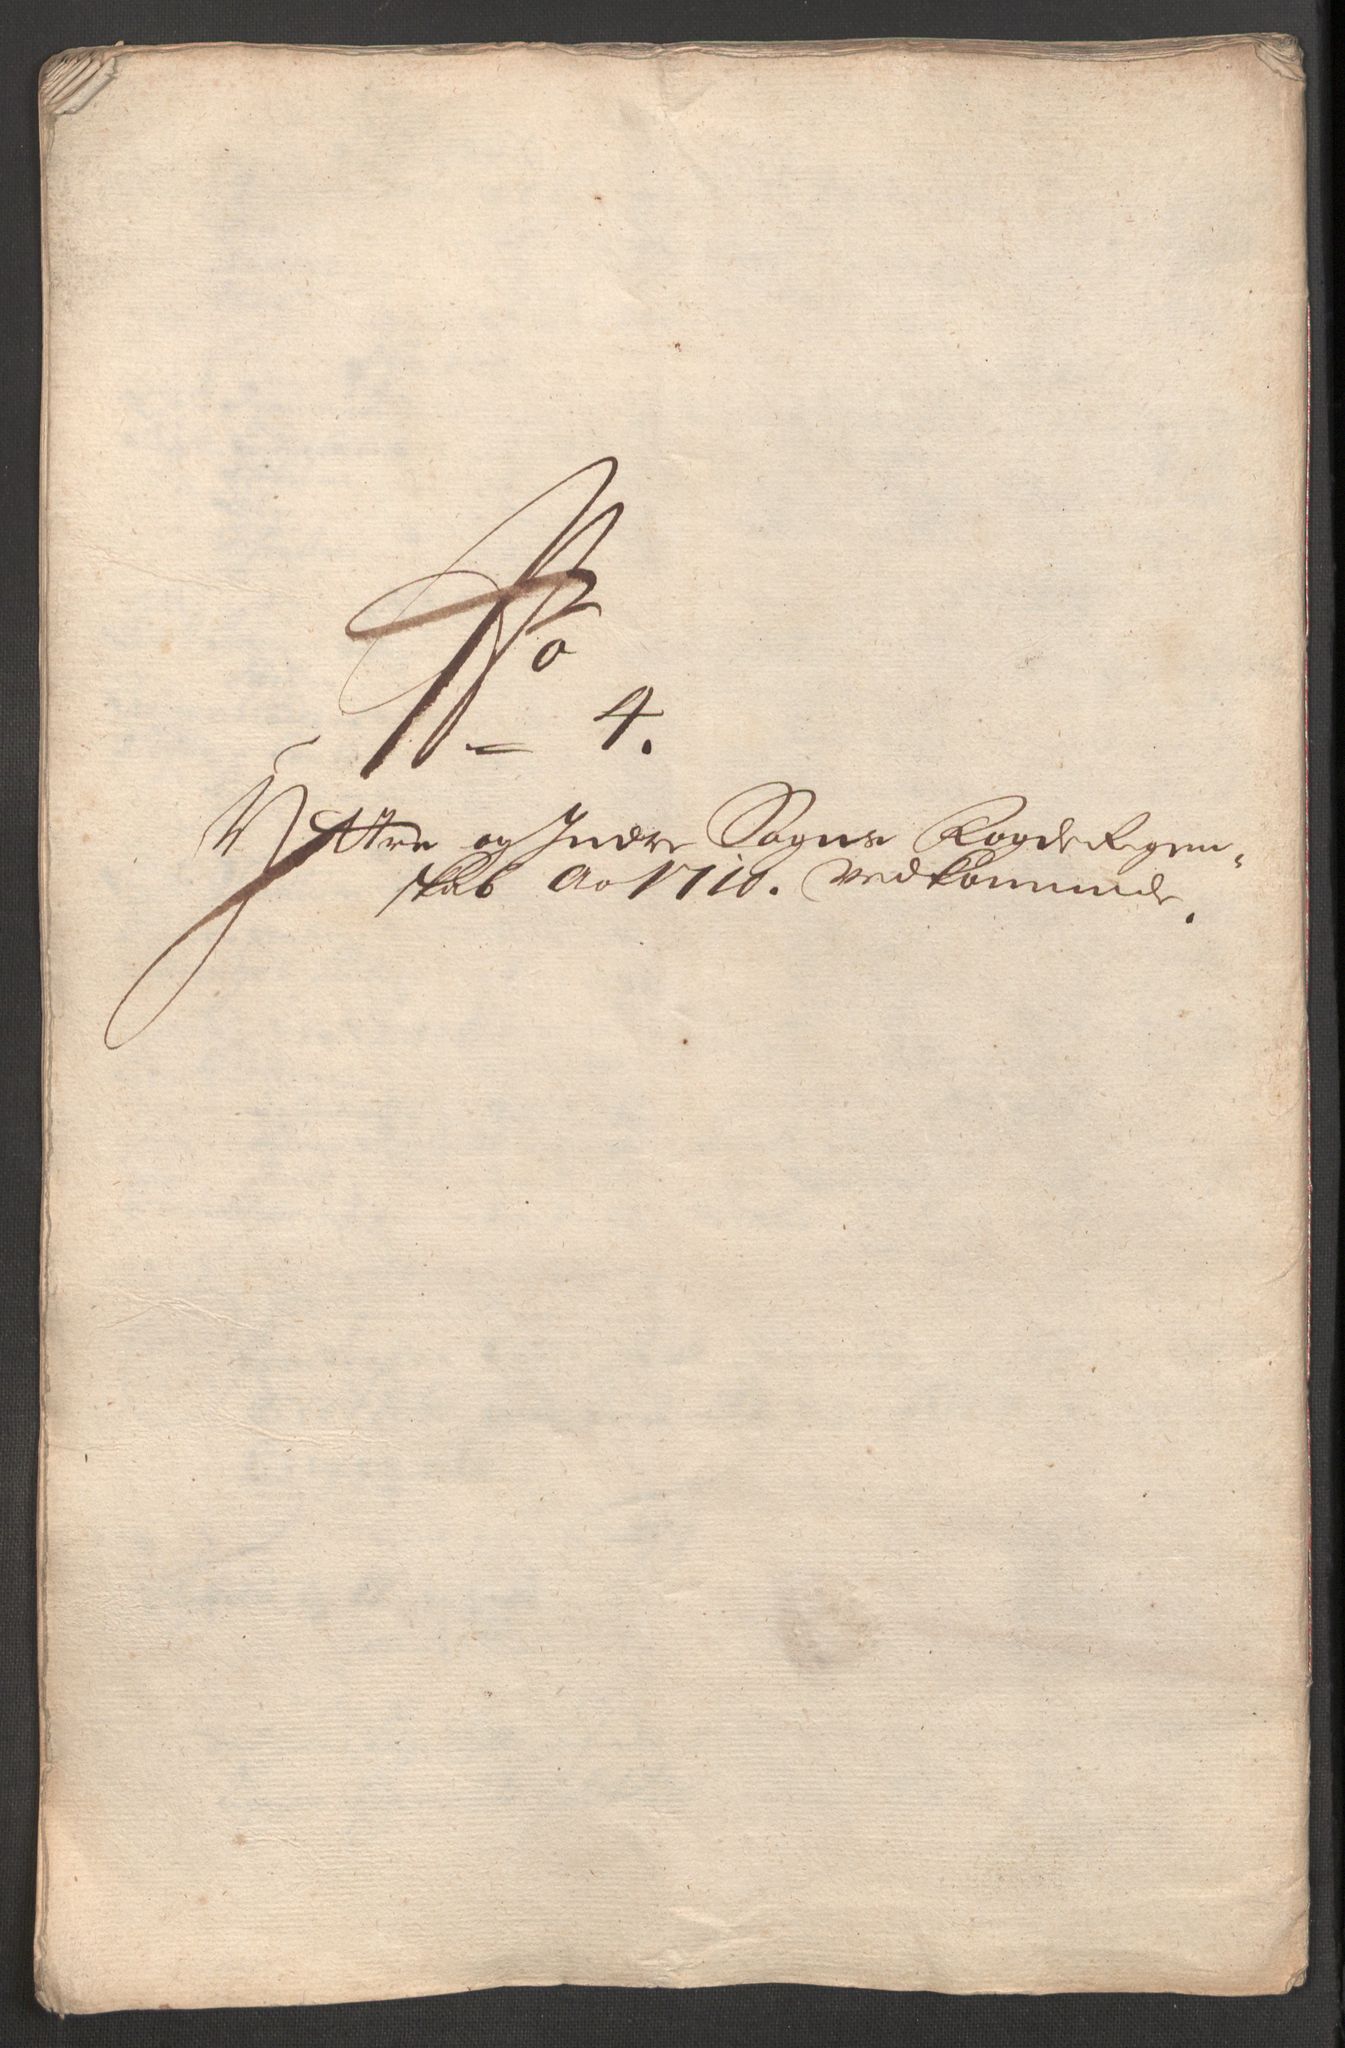 No
4.
Yttre og Indre Sogns Fogderegen-
skab Ao 1710. Vedkommende.